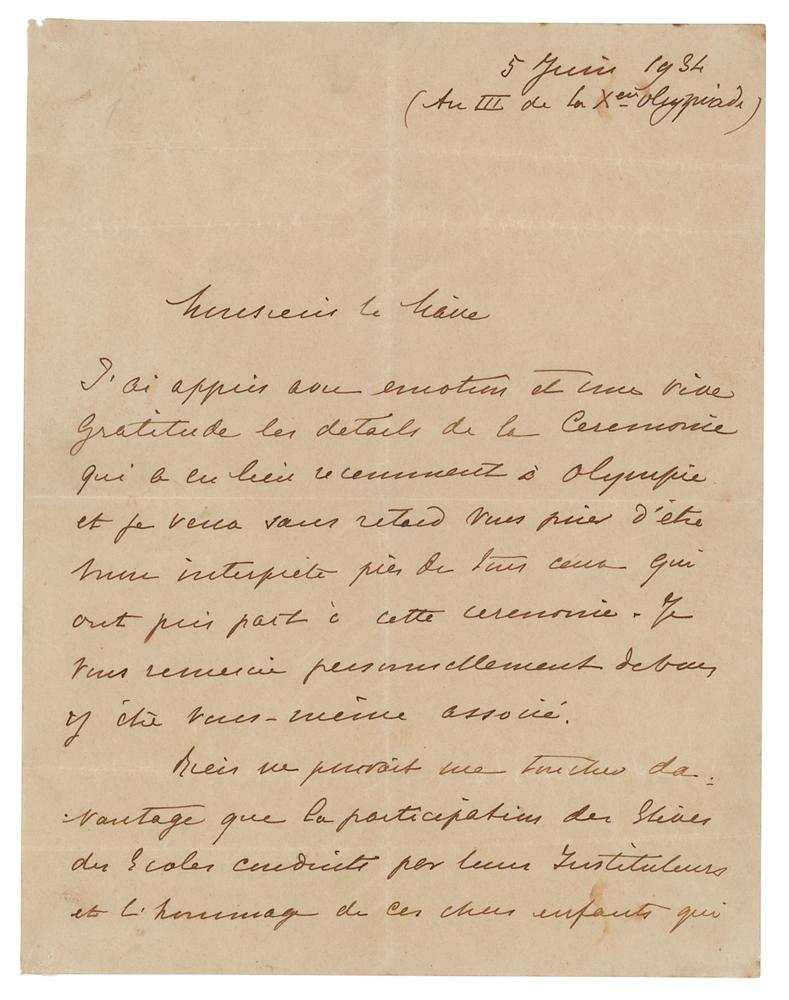 5 Juin 1934
(An III de la Xeme Olympiade)
Monsieur le Maire
J'ai appris avec emotion et une vive
Gratitude les details de la Ceremonie
qui a eu lieu recemment à Olympie
et je viens sans retard vous prier d'être
mon interprète près de tous ceux qui
ont pris part à cette ceremonie. Je
vous remercie personnellement de vous
y être vous-même associé.
Rien ne pouvait me toucher da-
vantage que la participation des Elèves
des Ecoles conduits par leurs Instituteurs
et l'hommage de ces chers enfants qui